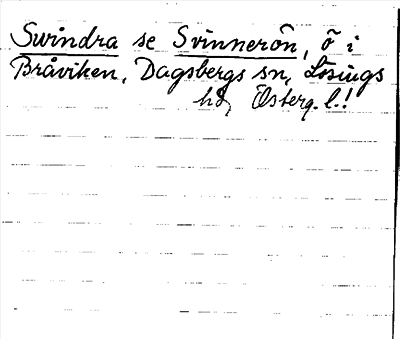 Swindra se Svinnerön, ö i
Bråviken, Dagsbergs sn, Lösings
hd, Österg. l.!